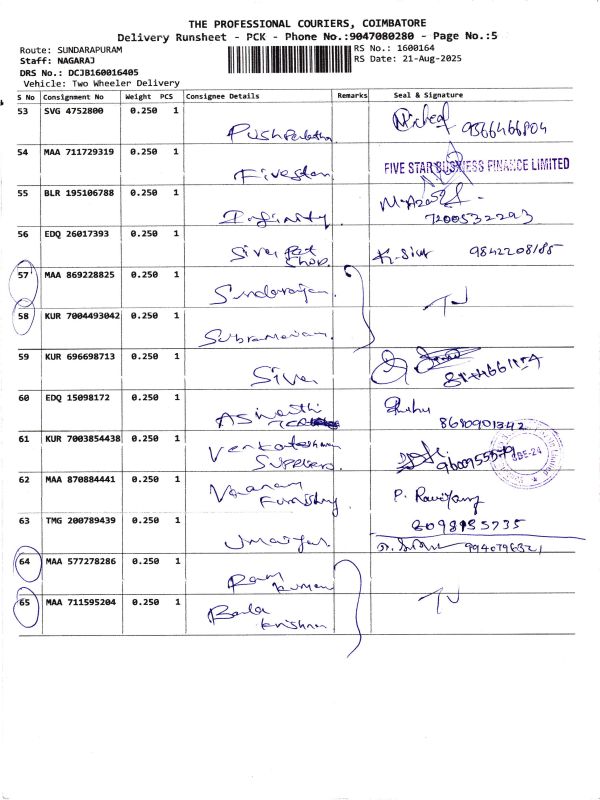 THE PROFESSIONAL COURIERS, COIMBATORE
Delivery Runsheet - PCK - Phone No.:9047080280 - Page No.:5
Route: SUNDARAPURAM RS No.: 1600164
Staff: NAGARAJ RS Date: 21-Aug-2025
DRS No.: DCJB160016405
Vehicle: Two Wheeler Delivery
S No Consignment No Weight PCS Consignee Details Remarks Seal & Signature
53 SVG 4752800 0.250 1 9566466804
54 MAA 711729319 0.250 1 Fivestar FIVE STAR BUSINESS FINANCE LIMITED
55 BLR 195106788 0.250 1 Infinity 7200532293
56 EDQ 26017393 0.250 1 Siva Pet Shop K. Siva 9842208185
57 MAA 869228825 0.250 1 Sundararajan
58 KUR 7004493042 0.250 1 Subramaniam
59 KUR 696698713 0.250 1 Siva
60 EDQ 15098172 0.250 1 Aswathi 8680901342
61 KUR 7003854438 0.250 1 Venkateshwara Suppliers
62 MAA 870884441 0.250 1 Furnishing P.
63 TMG 200789439 0.250 1 8098955735
9940796321
64 MAA 577278286 0.250 1 Ram kumar
65 MAA 711595204 0.250 1 Bala krishnan